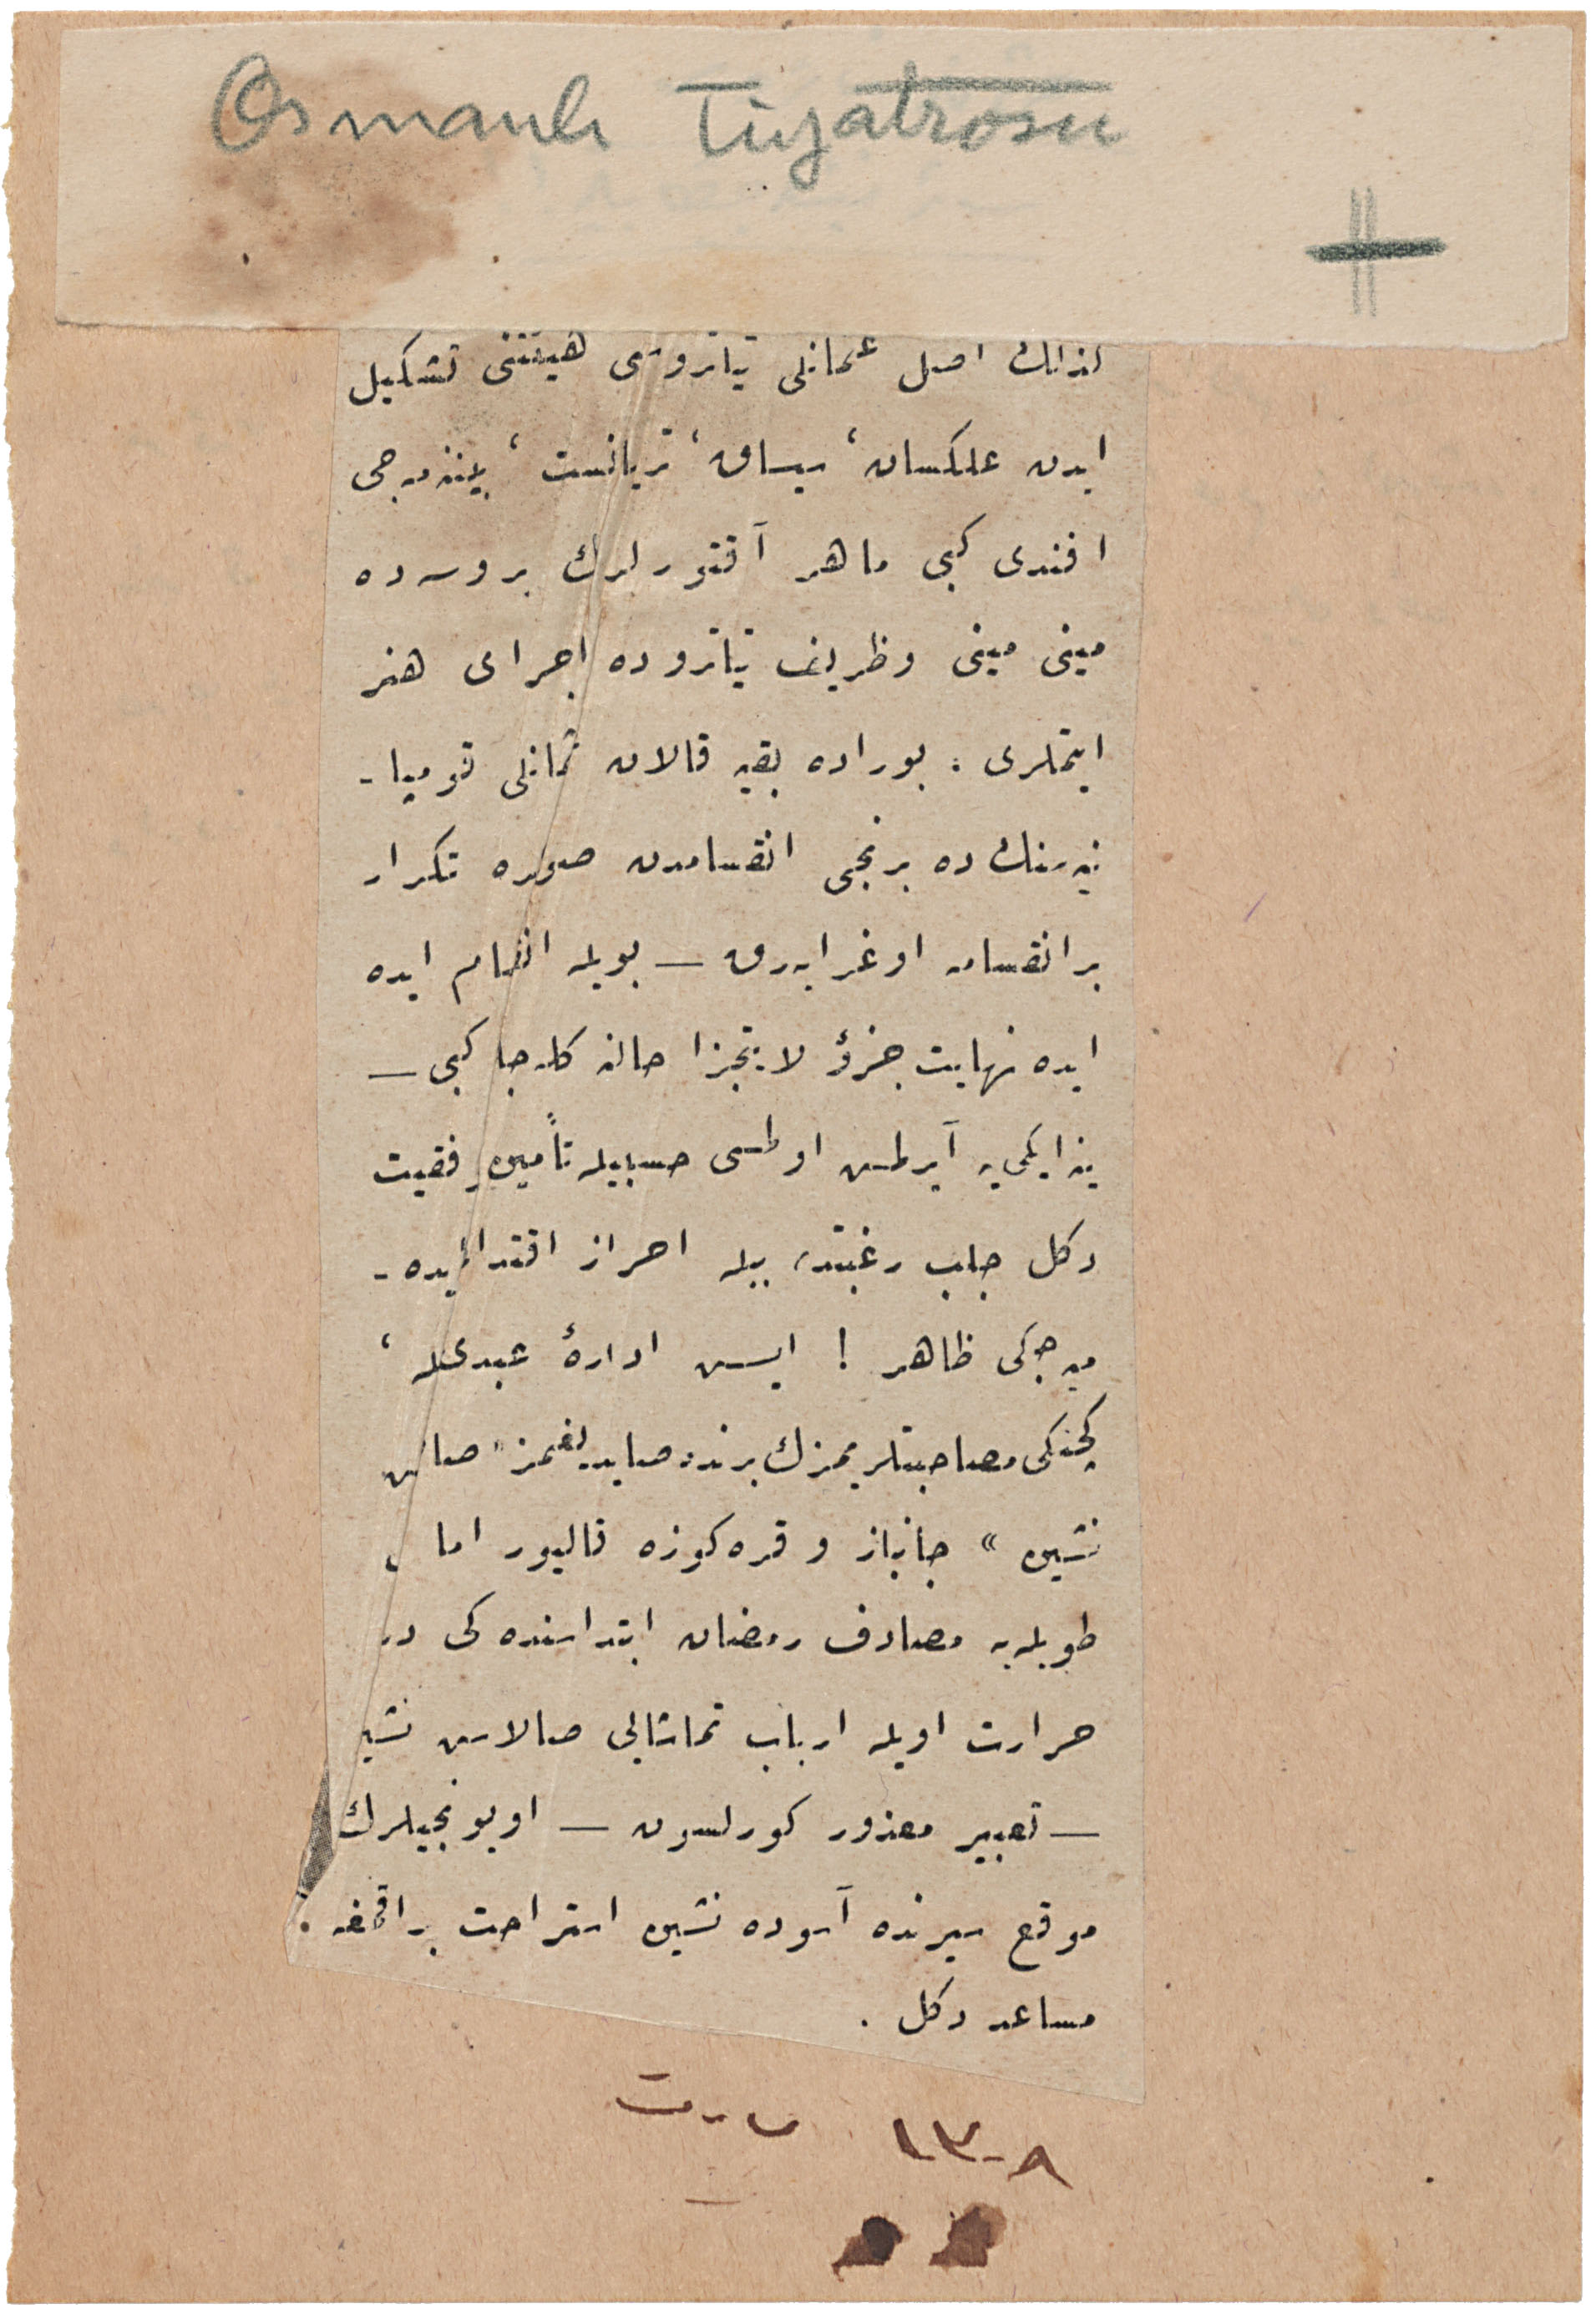 Osmanlı Tiyatrosu
اصل عثمانلى تياتروسى هيئتنى تشكيل
ايدن علكسان، سيساق، تريانست، بينمه جى
افندى كبى ماهر آقتورلرك بروسه ده
مينى مينى وظريف تياتروده اجراى هنر
ايتملرى ؛ بوراده بقيه قالان عثمانلى قومپا-
نيه سنك ده برنجى انقسامدن صوڭره تكرار
بر انقسامه اوغرايه رق — بويله انقسام ايده
ايده نهايت جزؤ لايتجزا حالنه كله جك كبى —
ينه ايكى يه آيرلمش اولمسى حسبيله تأمين موفقيت
دكل جلب رغبته بيله احراز اقتدار ايده-
ميه جكى ظاهر ! ايش ادارهٔ عبدى ايله ،
كچنكى مصاحبتلريمزك برنده صايديغمز « صالاش
نشين » جانباز و قره كوزه قاليور اما
طوبله يه مصادف رمضان ابتداسنده كى در
حرارت اويله ارباب تماشايى صالاش نشين
— تعبير معذور كورلسون — اويونجيلرك
موقع سيرنده آسوده نشين استراحت براقمغه
مساعد دكل .
١٣٠٨ مارت